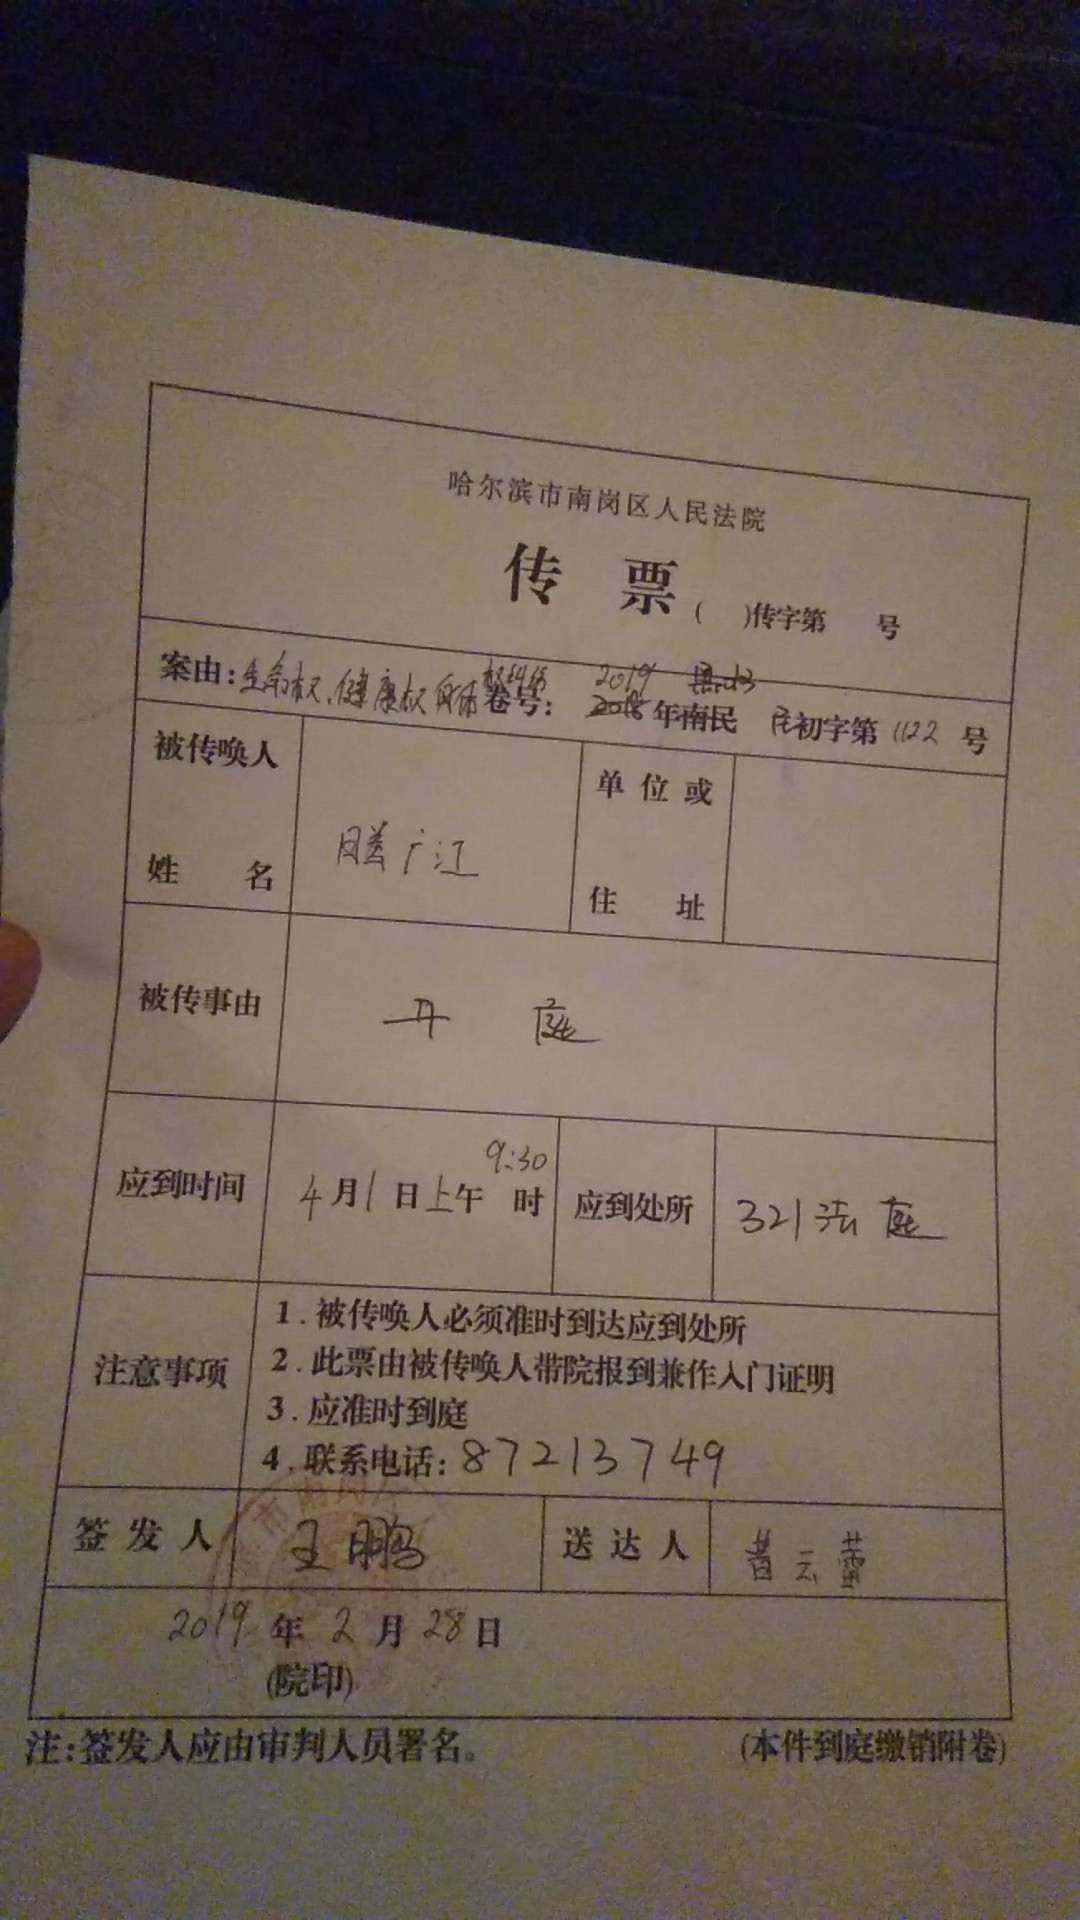 哈尔滨市南岗区人民法院
传 票 ( )传字第 号
案由:生命权、健康权身体权纠纷 卷号: 2019年 民初字第1122号
被传唤人
姓 名
滕广江
单位或
住 址
被传事由
开 庭
应到时间
4月1日上午9:30时
应到处所
321法庭
注意事项
1.被传唤人必须准时到达应到处所
2.此票由被传唤人带院报到兼作入门证明
3.应准时到庭
4.联系电话:87213749
签发人
王鹏
送达人
黄云蕾
2019年2月28日
(院印)
注:签发人应由审判人员署名。 (本件到庭缴销附卷)